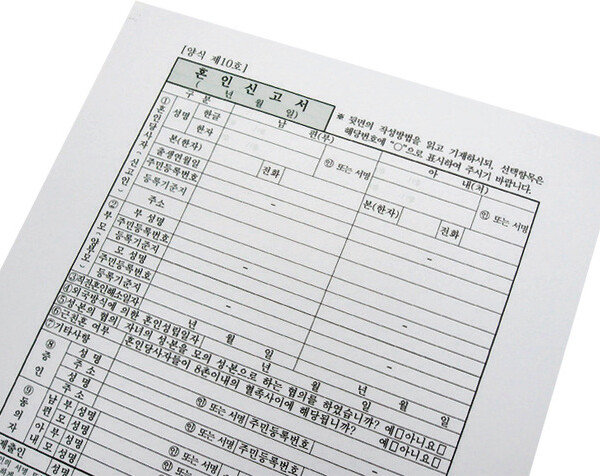 [양식 제10호]
혼 인 신 고 서
( 년 월 일)
※ 뒷면의 작성방법을 읽고 기재하시되, 선택항목은
해당번호에 "○"으로 표시하여 주시기 바랍니다.
구 분 남 편(부) 아 내(처)
①혼인당사자(신고인)
성명 한글 ㊞ 또는 서명 ㊞ 또는 서명
한자
본(한자) 전화 본(한자) 전화
출생연월일
주민등록번호 - -
등록기준지
주소
②부모(양부모)
부 성명
주민등록번호 - -
등록기준지
모 성명
주민등록번호 - -
등록기준지
③직전혼인해소일자 년 월 일 년 월 일
④외국방식에 의한 혼인성립일자 년 월 일
⑤성·본의 협의 자녀의 성·본을 모의 성·본으로 하는 협의를 하였습니까? 예□아니요□
⑥근친혼 여부 혼인당사자들이 8촌이내의 혈족사이에 해당됩니까? 예□아니요□
⑦기타사항
⑧증인
성 명 ㊞ 또는 서명 주민등록번호 -
주 소
성 명 ㊞ 또는 서명 주민등록번호
주 소
⑨동의자
남편 부 성명 ㊞ 또는 서명
모 성명
아내 부 성명
모 성명
제출인 성명